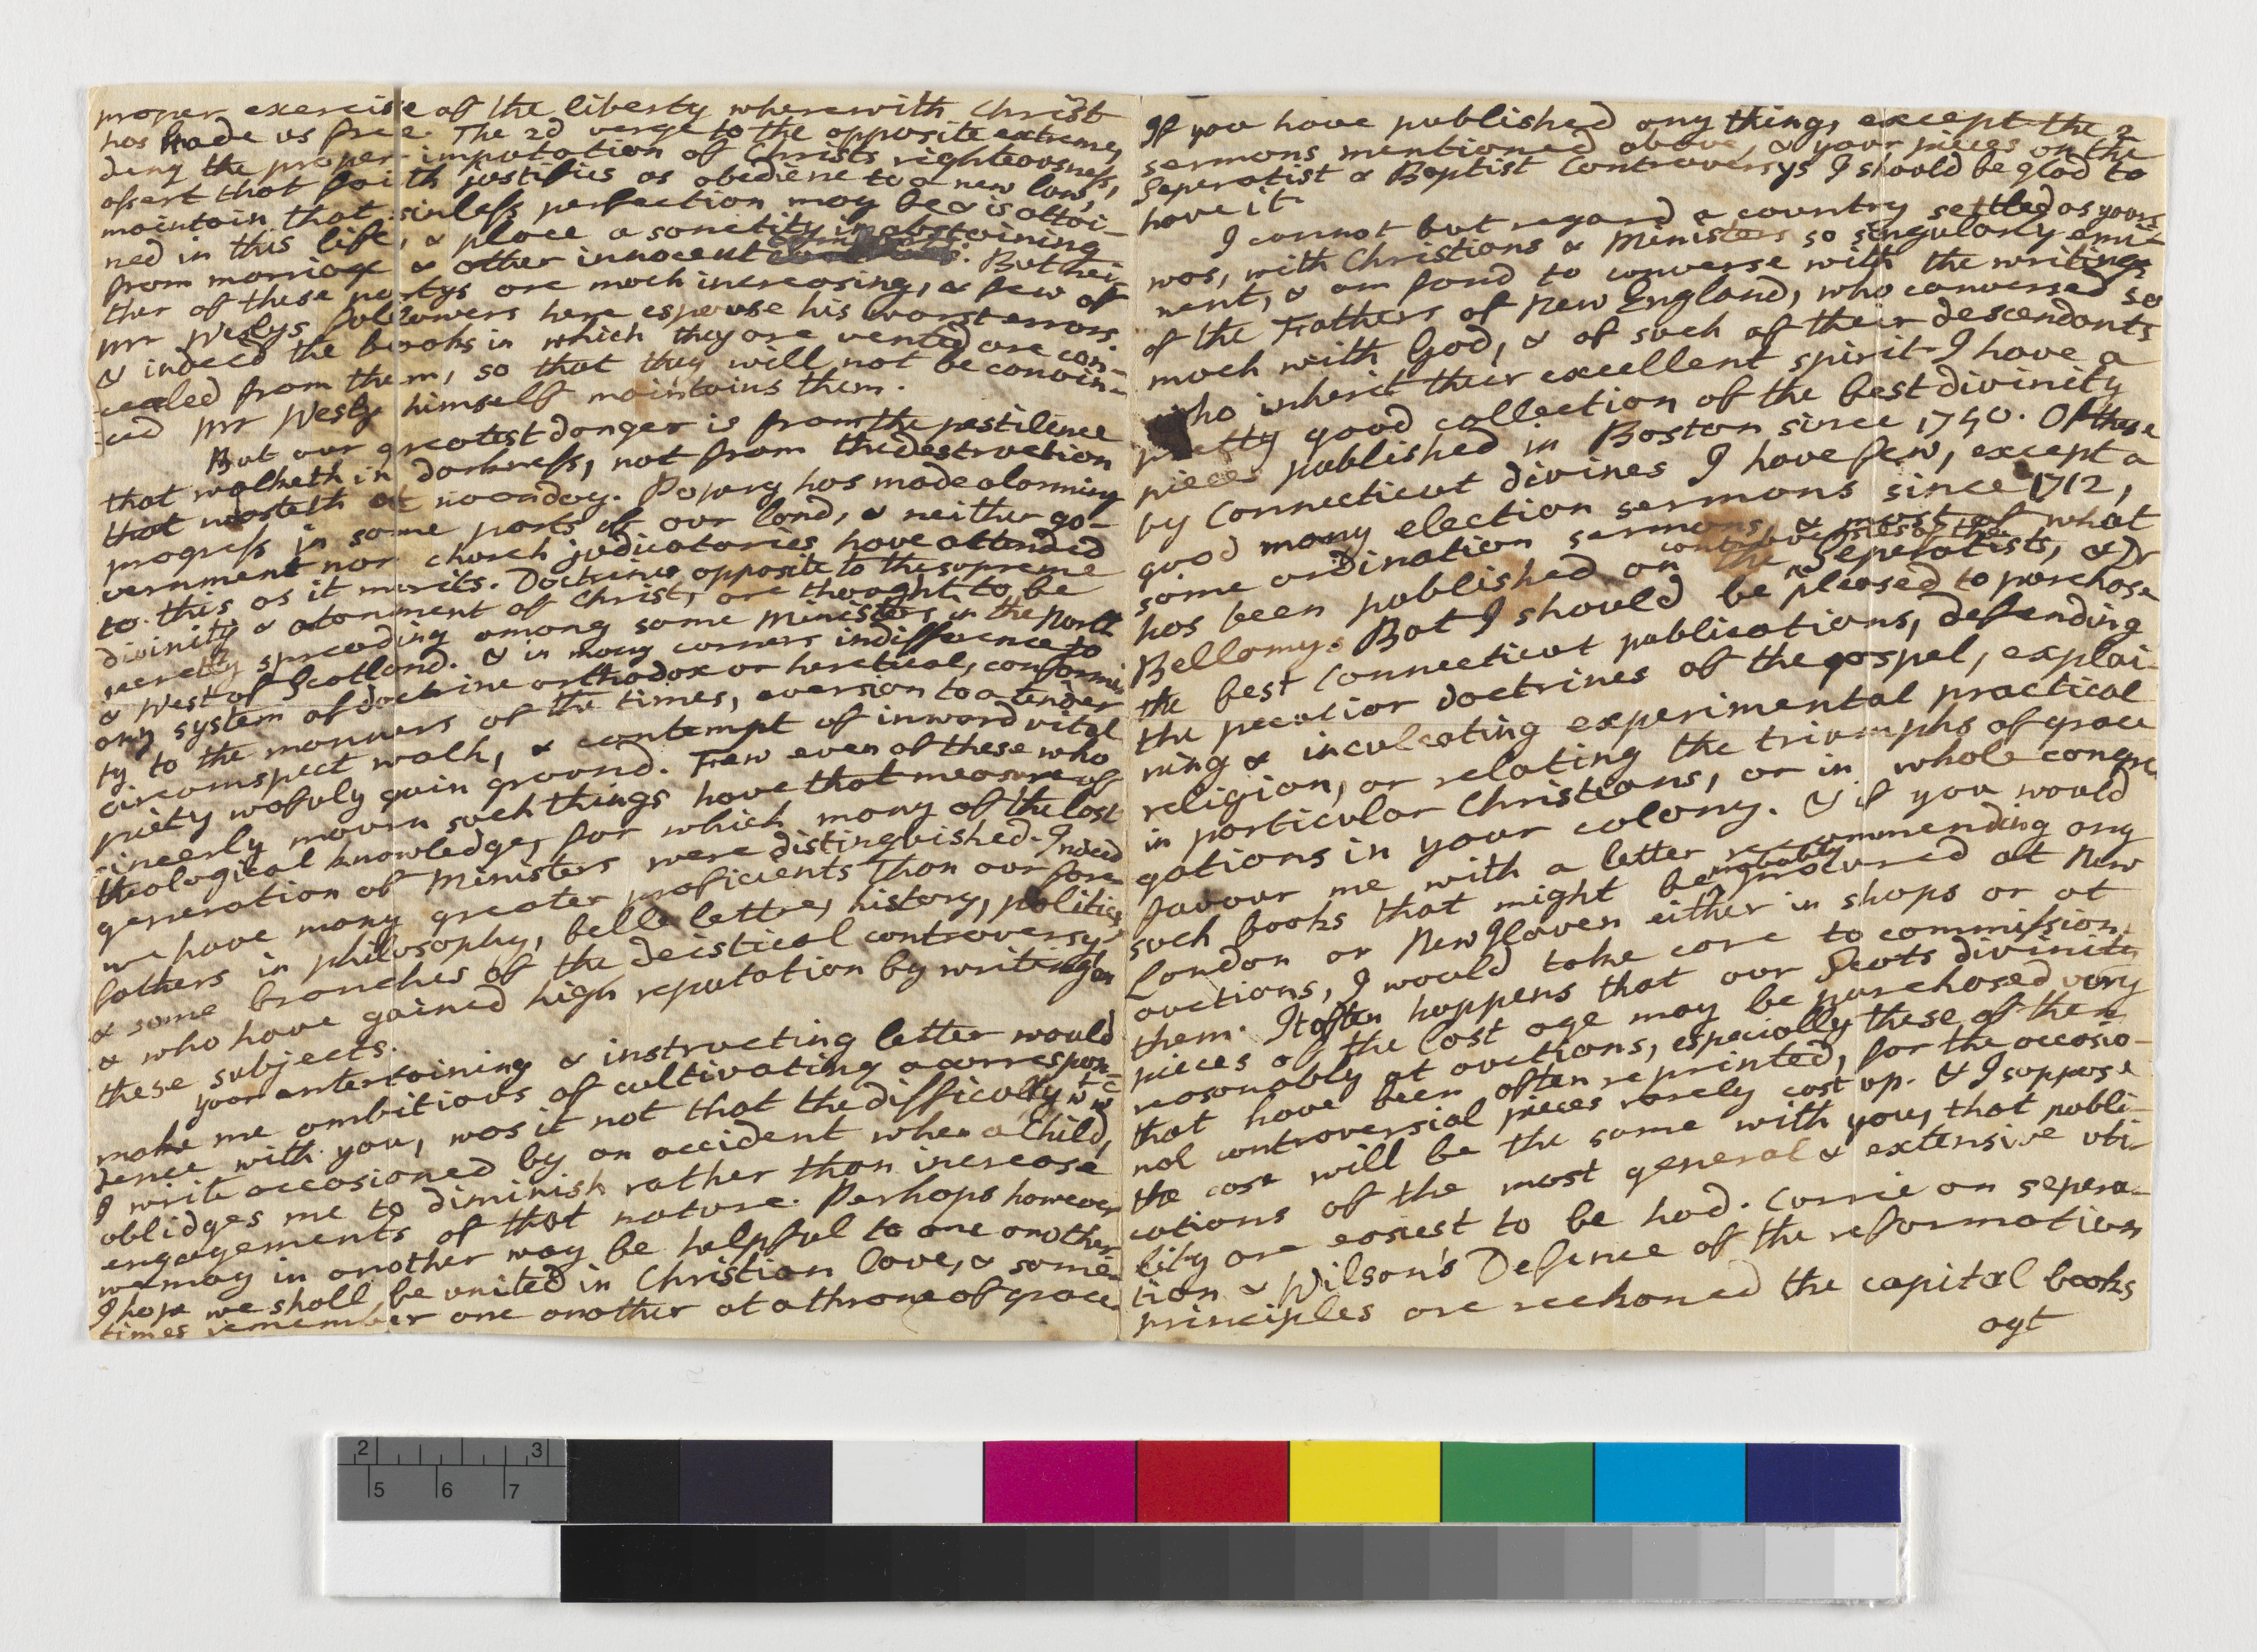 proper exercise of the liberty wherewith Christ
has made us free. The 2d verge to the opposite extreme,
deny the proper imputation of Christs righteousness,
assert that faith justifies as obedience to a new law,
maintain that sinless perfection may be & is attai-
ned in this life, & place a sanctity in abstaining
from marriage & other innocent . But nei-
ther of these partys are much increasing, & few of
mr Weslys followers here espouse his worst errors
& indeed the books in which they are vented are con-
cealed from them, so that they will not be convin-
ced mr Wesly himself maintains them.
But our greatest danger is from the pestilence
that walketh in darkness, not from the destruction
that wasteth at noonday. Popery has made alarming
progress in some parts of our land, & neither go-
vernment nor church judicatories have attended
to this as it merits. Doctrines opposite to the supreme
divinity & atonment of Christ, are thought to be
secretly spreading among some Ministers in the North
& West of Scotland. & in many corners indifference to
any system of doctrine orthodox or heretical, conformi-
ty to the manners of the times, aversion to a tender
circumspect walk, & contempt of inward vital
piety wofuly gain ground. Few even of these who
sincerly mourn such things have that measure of
theological knowledge, for which many of the last
generation of Ministers were distinguished. Indeed
we have many greater proficients than our fore-
fathers in philosophy, belle lettre, history, politics,
& some branches of the deistical controversy,
& who have gained high reputation by writing on
these subjects.
Your entertaining & instructing letter would
make me ambitious of cultivating a correspon-
dence with you, was it not that the difficulty wt wc
I write occasioned by an accident when a Child,
oblidges me to diminish rather than increase
engagements of that nature. Perhaps however
we may in another way be helpful to one another
I hope we shall be united in Christian love, & some-
times remember one another at a throne of grace.
If you have published any thing, except the 2
sermons mentioned above, & your pieces on the
Seperatist & Baptist Controversys I should be glad to
have it.
I cannot but regard a country settled as yours
was, with Christians & Ministers so singularly emi-
nent, & am fond to converse with the writings
of the Fathers of New England, who conversed so
much with God, & of such of their descendants
who inherit their excellent spirit. I have a
pretty good collection of the best divinity
pieces published in Boston since 1740. Of these
by Connecticut divines I have few, except a
good many election sermons since 1712,
some ordination sermons, & most of what
has been published on the controversies of the Seperatists, & Dr
Bellamys. But I should be pleased to purchase
the best Connecticut publications, defending
the peculiar doctrines of the gospel, explai-
ning & inculcating experimental practical
religion, or relating the triumphs of grace
in particular Christians, or in whole congre-
gations in your colony. & if you would
favour me with a letter recommending any
such books that might be probably procured at New
London or New Haven either in shops or at
auctions, I would take care to commission
them. It often happens that our Scots divinity
pieces of the last age may be purchased very
reasonably at auctions, especially these of them
that have been often reprinted, for the occasio-
nal controversial pieces rarely cast up. & I suppose
the case will be the same with you, that publi-
cations of the most general & extensive uti-
lity are easiest to be had. Currie on separa-
tion & Wilson's Defence of the reformation
principles are reckoned the capital books
agt
2 3
5 6 7